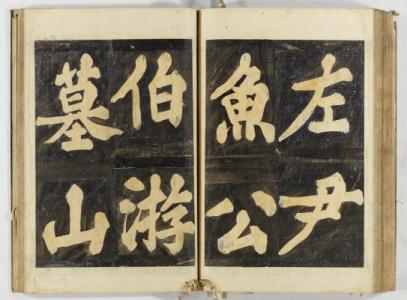 左尹
魚公
伯游
墓山